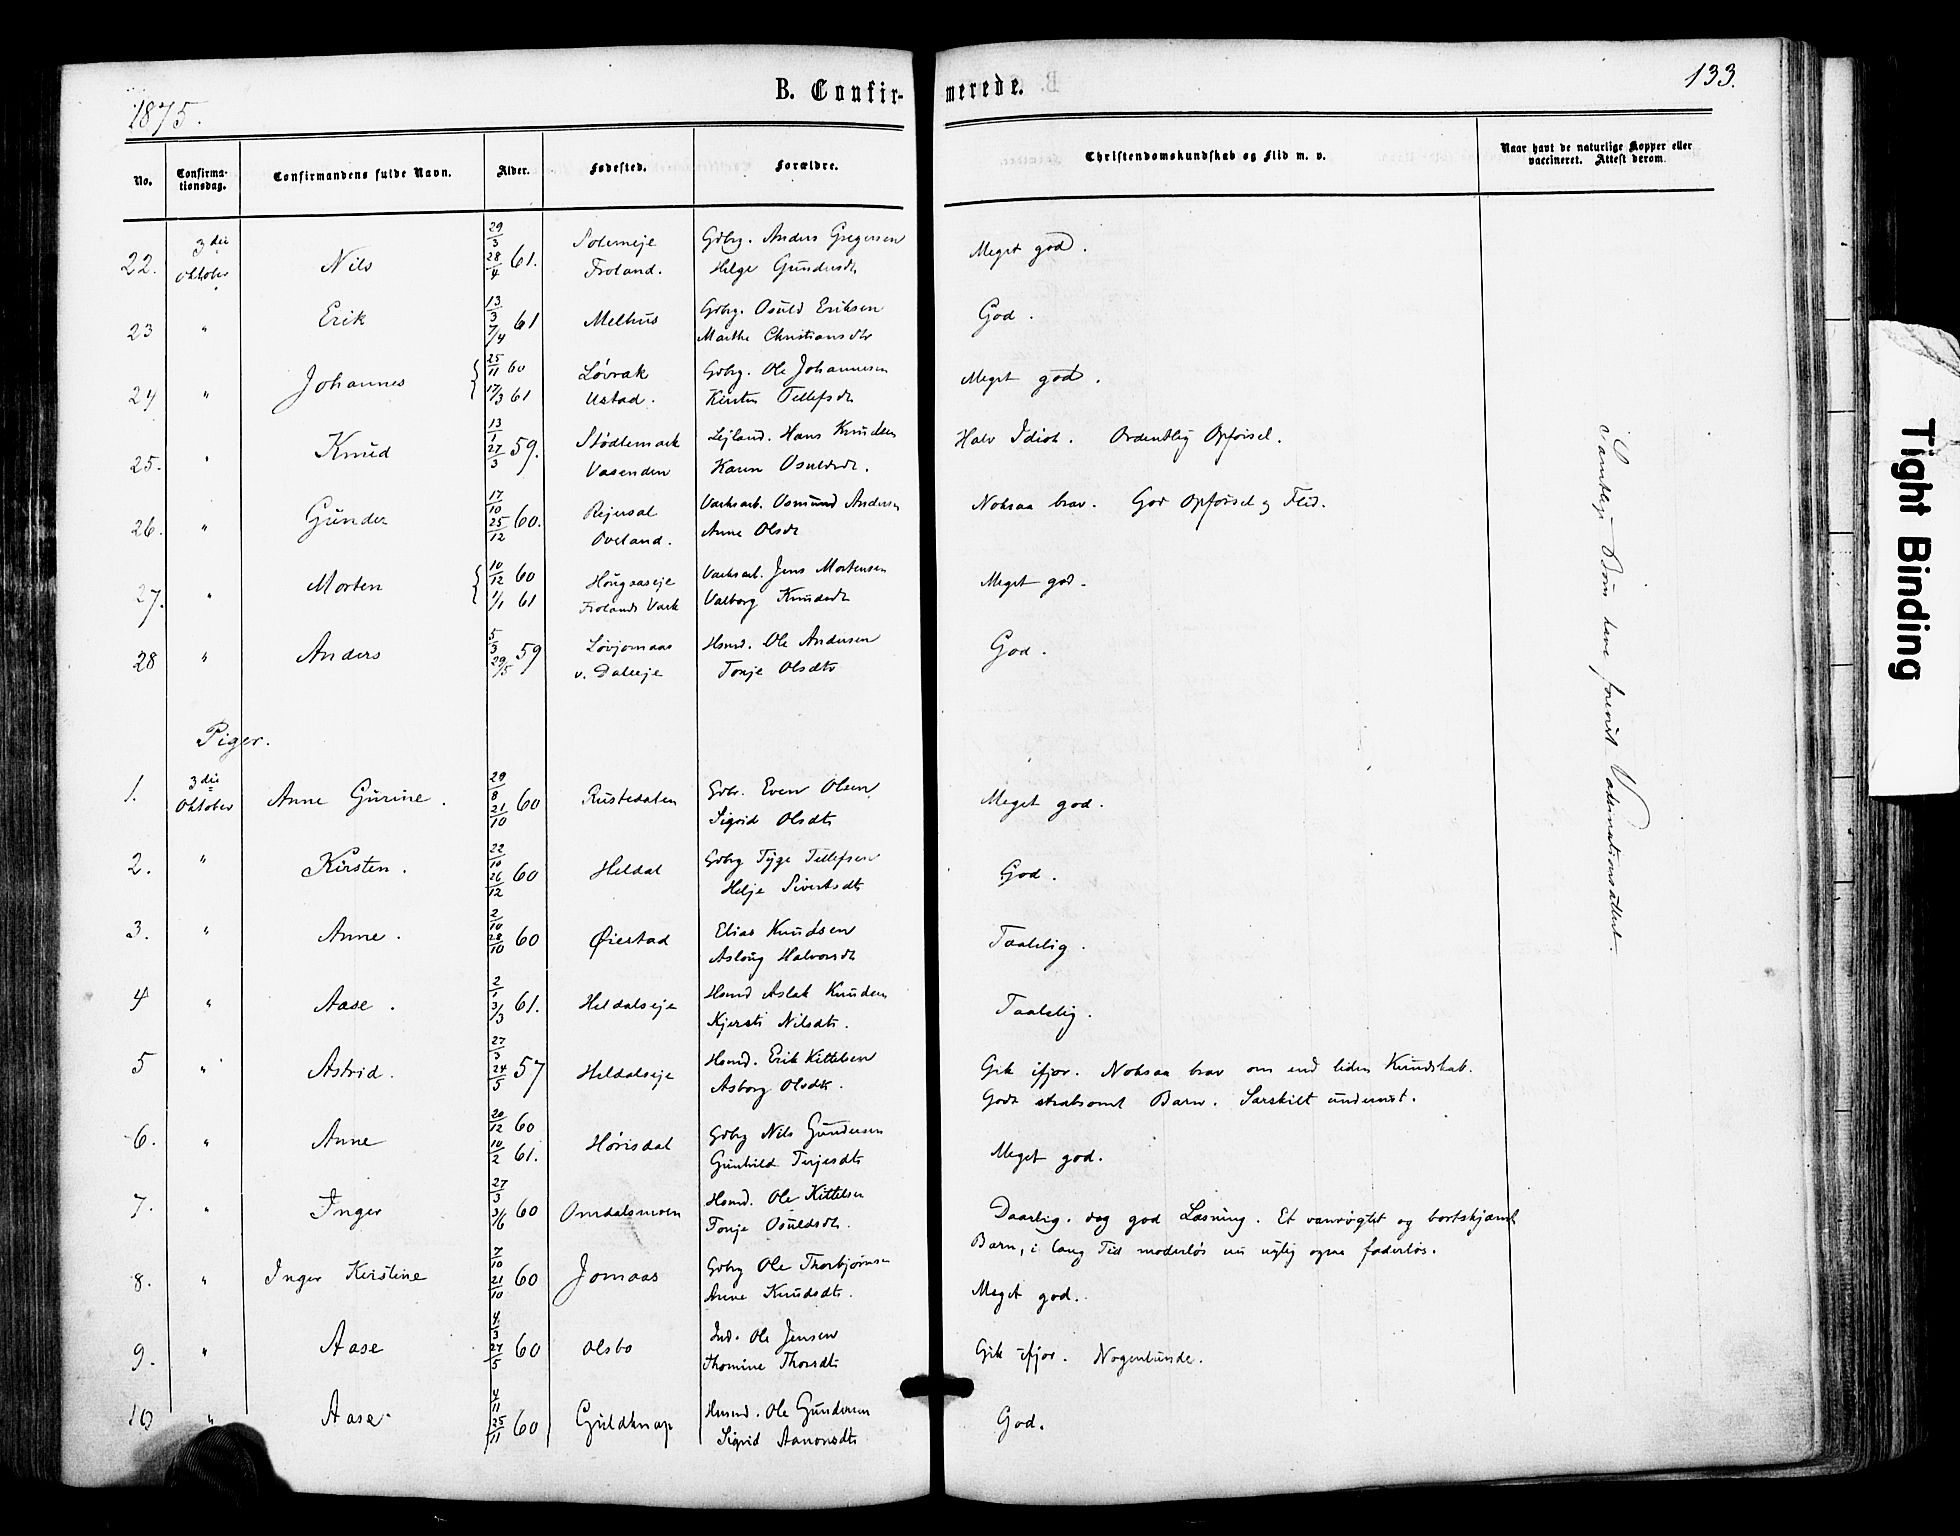 1875.
B. Confir-
merede.
133.
No.
Confirma-
tionsdag.
Confirmandens fulde Navn.
Alder.
Fødested.
Forældre.
Christendomskundskab og Flid m. v.
Naar havt de naturlige Kopper eller
vaccineret. Attest derom.
22. 3die Oktober Nils 29/3 28/4 61. Froland. Gdbr. Anders Gregersen Helge Gundersdt Meget god.
23 " Erik 13/3 7/4 61 Melhus Gdbr. Osuld Eriksen Marthe Christiansdtr God.
24 " Johannes { 25/11 60 17/3 61 Løvrak Ustad. Gdbr. Ole Johannesen Kirsten Tellefsdt Meget god.
25. " Knud 13/1 27/3 59. Stødlemark Vasenden Lejland. Hans Knudsen Karen Osuldsdt. Halv Idiot. Ordentlig Opførsel.
26. " Gunder 17/10 25/12 60. Rejersal Oveland. Værksarb. Osmund Andersen Anne Olsdt Noksaa brav. God Opførsel og Flid.
27. " Morten { 10/12 60 1/1 61 Hougaaseje Frolands Værk Værksarb. Jens Mortensen Valborg Knudsdt Meget god.
28 " Anders 5/3 29/5 59 Løvjomaas v. Daleeje Hsmd. Ole Andersen Tonje Olsdtr God.
Piger.
1. 3die Oktober Anne Gurine. 29/8 21/10 60 Rustedalen Gdbr. Even Olsen Sigrid Olsdtr Meget god.
2. " Kirsten. 22/10 26/12 60 Heldal Gdbr Tyge Tellefsen Helje Sivertsdtr God.
3. " Anne. 2/10 28/10 60 Øiestad Elias Knudsen Aslaug Halvorsdt Taalelig.
4 " Aase. 2/1 3/3 61. Heldalseje Hsmd Aslak Knudsen Kjersti Nilsdt. Taalelig.
5 " Astrid. 27/3 24/5 57 Heldalseje Hsmd. Erik Kittelsen Asborg Olsdtr. Gik ifjor. Noksaa brav om end liden Kundskab.
Godt strabsomt Barn. Særskilt undervist.
6. " Anne 20/12 60 10/2 61. Hørisdal Gdbr Nils Gundersen Gunhild Terjesdtr Meget god.
7. " Inger 27/3 3/6 60 Omdalsmoen Hsmd. Ole Kittelsen Tonje Osuldsdt. Daarlig. dog god Læsning. Et vanrøgtet og bortskjæmt
Barn, i lang Tid moderløs nu nylig ogsaa faderløs.
8. " Inger Kirstine 7/10 21/10 60 Jomaas Gdbr Ole Thorbjørnsen Anne Knudsdtr. Meget god.
9. " Aase 4/3 27/5 60 Olsbo Ind. Ole Jensen Thomine Thorsdt Gik ifjor. Nogenlunde.
10 " Aase 4/11 25/11 60 Guldknap Husmd. Ole Gundersen Sigrid Aanonsdtr God.
Samtlige Børn have forevist Vaksinationsattest.
Tight Binding